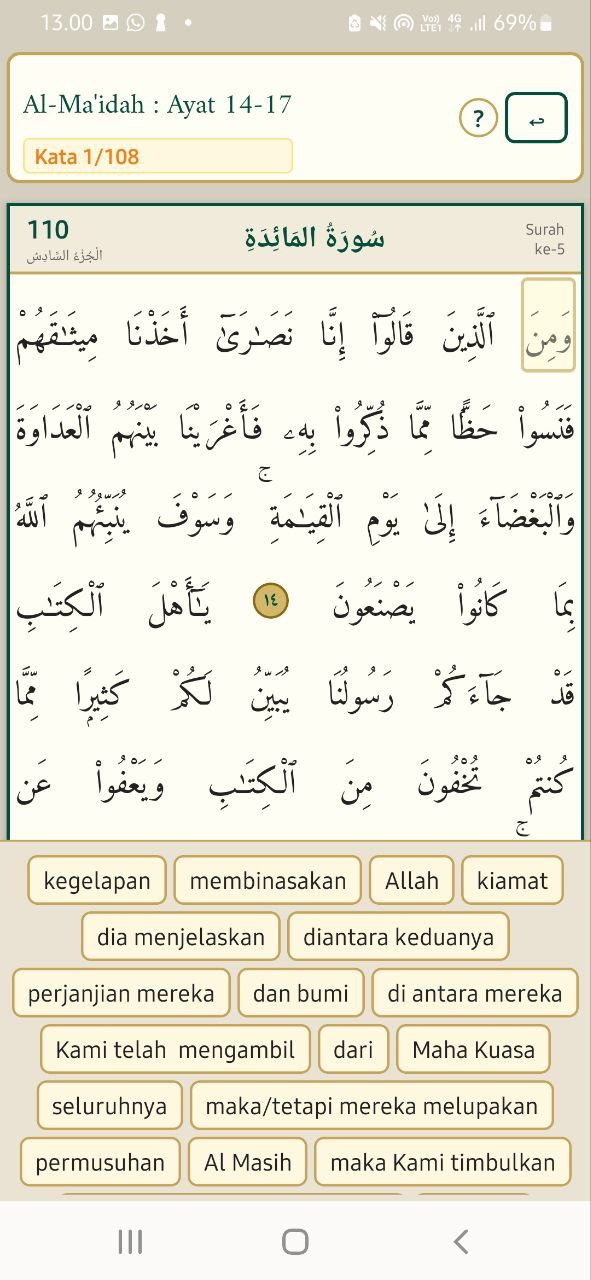 13.00 Vo)) LTE1 4G 69%
Al-Ma'idah : Ayat 14-17
?
Kata 1/108
110 سُورَةُ المَائِدَةِ Surah
الْجُزْءُ السَّادِسُ ke-5
وَمِنَ ٱلَّذِينَ قَالُوٓا۟ إِنَّا نَصَـٰرَىٰٓ أَخَذْنَا مِيثَـٰقَهُمْ
فَنَسُوا۟ حَظًّا مِّمَّا ذُكِّرُوا۟ بِهِۦ فَأَغْرَيْنَا بَيْنَهُمُ ٱلْعَدَاوَةَ
وَٱلْبَغْضَآءَ إِلَىٰ يَوْمِ ٱلْقِيَـٰمَةِ ۚ وَسَوْفَ يُنَبِّئُهُمُ ٱللَّهُ
بِمَا كَانُوا۟ يَصْنَعُونَ ١٤ يَـٰٓأَهْلَ ٱلْكِتَـٰبِ
قَدْ جَآءَكُمْ رَسُولُنَا يُبَيِّنُ لَكُمْ كَثِيرًا مِّمَّا
كُنتُمْ تُخْفُونَ مِنَ ٱلْكِتَـٰبِ وَيَعْفُوا۟ عَن
ۚ
kegelapan membinasakan Allah kiamat
dia menjelaskan diantara keduanya
perjanjian mereka dan bumi di antara mereka
Kami telah mengambil dari Maha Kuasa
seluruhnya maka/tetapi mereka melupakan
permusuhan Al Masih maka Kami timbulkan